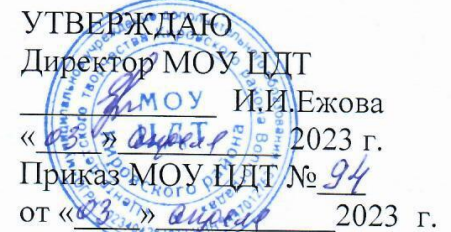 УТВЕРЖДАЮ
Директор МОУ ЦДТ
И.И.Ежова
«03» апреля 2023 г.
Приказ МОУ ЦДТ № 94
от «03» апреля 2023 г.
МОУ
ЦДТ
Кировского района